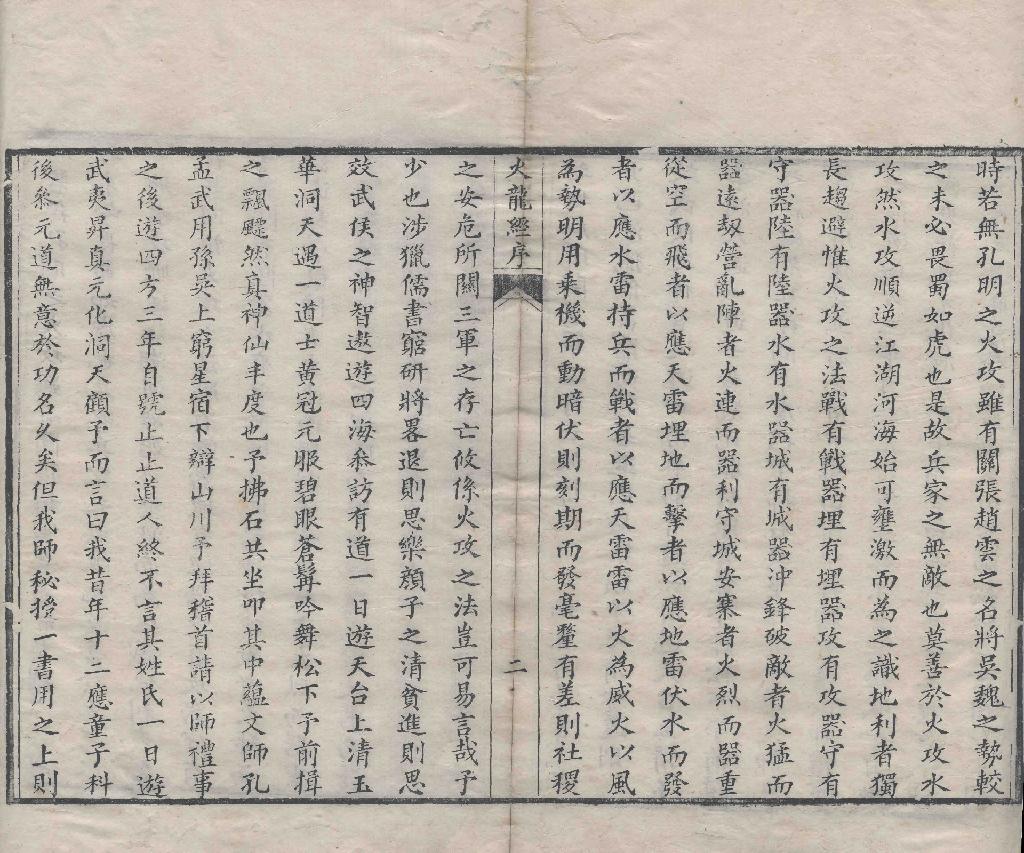 時若無孔明之火攻雖有關張趙雲之名將吳魏之勢較
之未必畏蜀如虎也是故兵家之無敵也莫善於火攻水
攻然水攻順逆江湖河海始可壅激而為之識地利者獨
長趨避惟火攻之法戰有戰器埋有埋器攻有攻器守有
守器陸有陸器水有水器城有城器冲鋒破敵者火猛而
器遠刼營亂陣者火連而器利守城安寨者火烈而器重
從空而飛者以應天雷埋地而擊者以應地雷伏水而發
者以應水雷持兵而戰者以應天雷雷以火為威火以風
為勢明用乘機而動暗伏則刻期而發毫釐有差則社稷
火龍經序
二
之安危所關三軍之存亡攸係火攻之法豈可易言哉予
少也涉獵儒書窮研將畧退則思樂顏子之清貧進則思
效武侯之神智遨遊四海叅訪有道一日遊天台上清玉
華洞天遇一道士黄冠元服碧眼蒼髯吟舞松下予前揖
之飄飄然真神仙丰度也予拂石共坐叩其中蘊文師孔
孟武用孫吳上窮星宿下辯山川予拜稽首請以師禮事
之後遊四方三年自號止止道人終不言其姓氏一日遊
武夷昇真元化洞天顧予而言曰我昔年十二應童子科
後叅元道無意於功名久矣但我師秘授一書用之上則